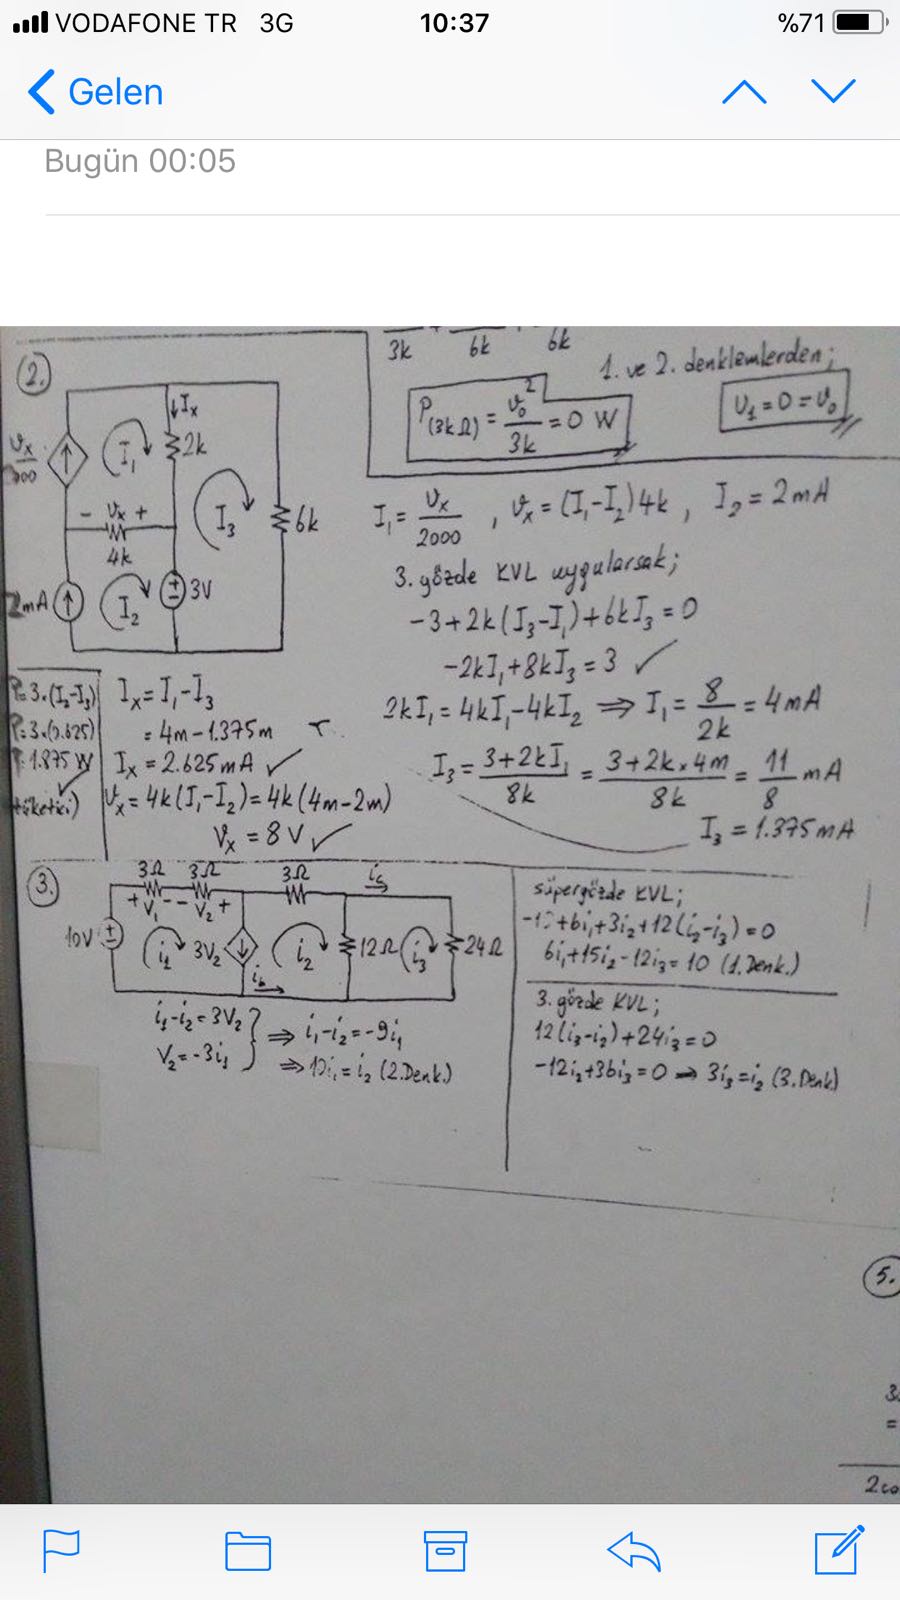 VODAFONE TR 3G 10:37 %71
Gelen
Bugün 00:05
3k + 6k 6k
1. ve 2. denklemlerden;
P(3kΩ) = v₀²/3k = 0 W
U₁ = 0 = v₀
(2.)
↓Ix
I₁
2k
I₃
6k
- vx +
4k
I₂
3V
2mA
I₁ = vx/2000 , vx = (I₁-I₂)4k , I₂ = 2mA
3. gözde KVL uygularsak;
-3+2k(I₃-I₁)+6kI₃ = 0
-2kI₁+8kI₃ = 3 ✓
2kI₁ = 4kI₁-4kI₂ ⇒ I₁ = 8/2k = 4mA
I₃ = 3+2kI₁/8k = 3+2k×4m/8k = 11/8 mA
I₃ = 1.375mA
P=3.(I₂-I₃)
P=3.(0.625)
1.875 W
tüketici)
Ix = I₁-I₃
= 4m-1.375m
Ix = 2.625mA ✓
Vx = 4k(I₁-I₂) = 4k(4m-2m)
Vx = 8V ✓
(3.)
3Ω 3Ω 3Ω
+ V₁ - - V₂ +
10V
i₁
3V₂
i₂
12Ω
i₃
24Ω
i₁-i₂=3V₂
V₂=-3i₁
⇒ i₁-i₂=-9i₁
⇒ 10i₁=i₂ (2.Denk.)
süpergözde KVL;
-10+6i₁+3i₂+12(i₂-i₃)=0
6i₁+15i₂-12i₃=10 (1.Denk.)
3. gözde KVL;
12(i₃-i₂)+24i₃=0
-12i₂+36i₃=0 → 3i₃=i₂ (3.Denk)
(5.
3.
=